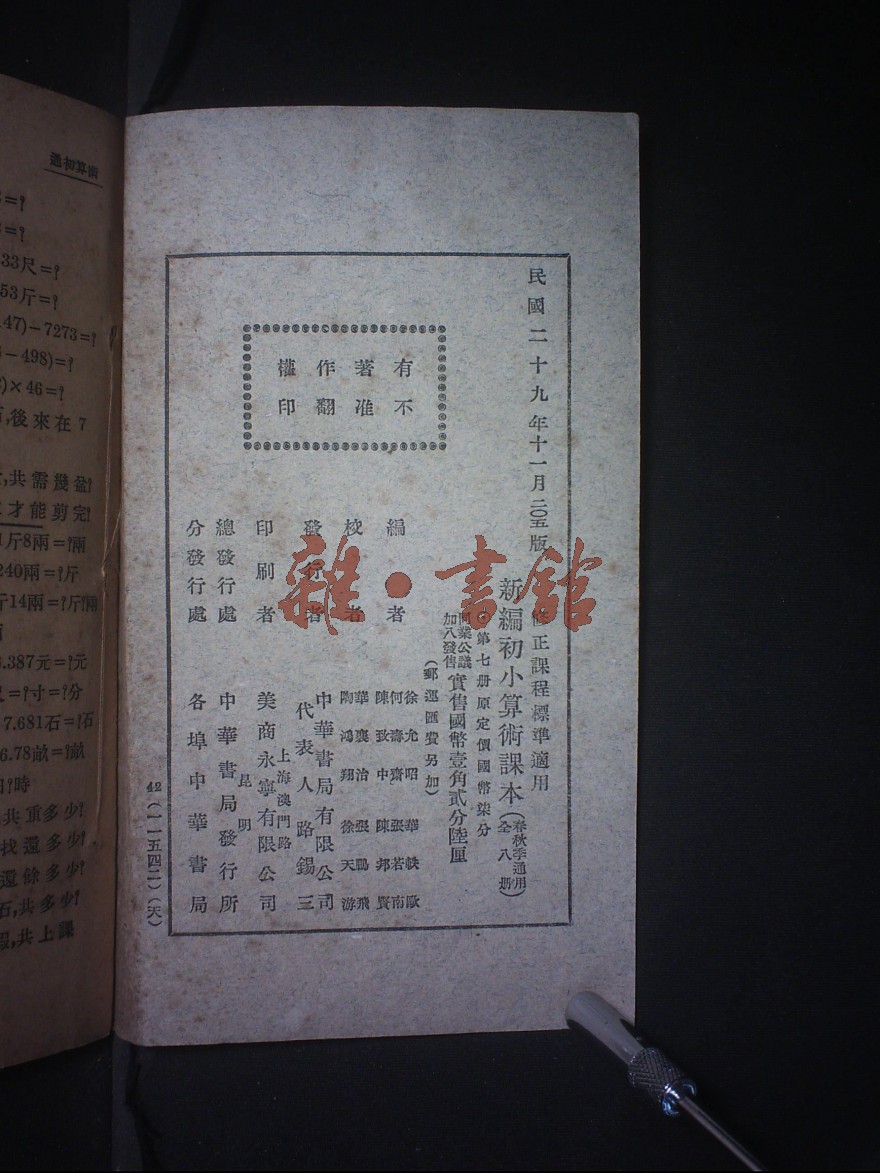 民國二十九年十一月二〇五版
修正課程標準適用
新編初小算術課本
(春秋季通用
全八册)
第七册原定價國幣柒分
同業公議
加八發售
實售國幣壹角貳分陸厘
(郵運匯費另加)
有著作權
不准翻印
編者
徐允昭 華軼歐
何壽齋 張若南
陳致中 陳邦賢
校者
華襄治 張鵬飛
陶鴻翔 徐天游
發行者
中華書局有限公司
代表人路錫三
印刷者
上海澳門路
美商永寧有限公司
總發行處
昆明
中華書局發行所
分發行處
各埠中華書局
42(一一五四二)(天)
雜·書館
通初算術
=?
=?
33尺=?
53斤=?
147)-7273=?
-498)=?
)×46=?
,後來在7
,共需幾盆?
才能剪完?
斤8兩=?兩
240兩=?斤
斤14兩=?斤?兩
.387元=?元
=?寸=?分
7.681石=?石
6.78畝=?畝
?時
共重多少?
找還多少?
還餘多少?
石,共多少?
假,共上課